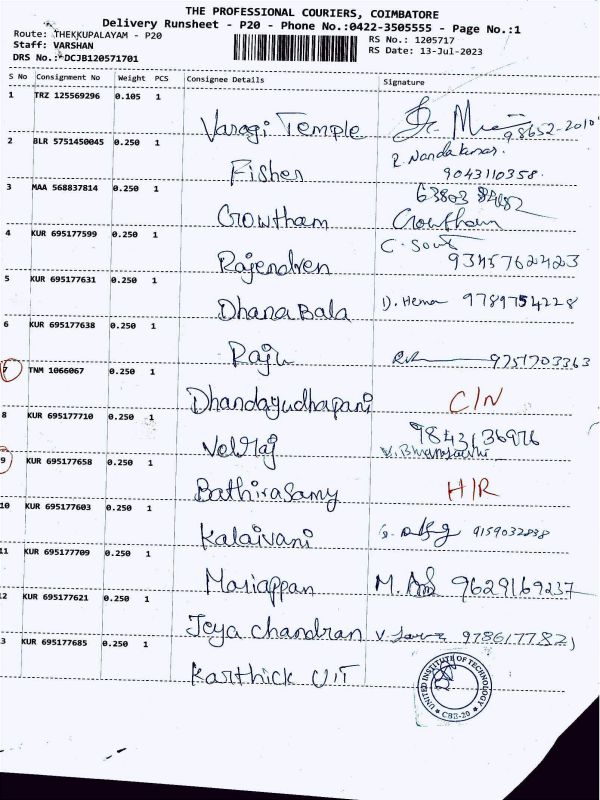 THE PROFESSIONAL COURIERS, COIMBATORE
Delivery Runsheet - P20 - Phone No.:0422-3505555 - Page No.:1
Route: THEKKUPALAYAM - P20
RS No.: 1205717
Staff: VARSHAN
RS Date: 13-Jul-2023
DRS No.: DCJB120571701
S No Consignment No Weight PCS Consignee Details Signature
1 TRZ 125569296 0.105 1
Varagi Temple 98652-2010
2 BLR 5751450045 0.250 1
R. Nandakumar.
Fisher 9043110358.
3 MAA 568837814 0.250 1
63803
Gowtham Gowtham
4 KUR 695177599 0.250 1
Rajendren 9345762423
5 KUR 695177631 0.250 1
Dhana Bala D. Hema 9789754228
6 KUR 695177638 0.250 1
Raju 9751703363
7 TNM 1066067 0.250 1
Dhandayudhapani C/N
8 KUR 695177710 0.250 1
9843136976
Velraj
9 KUR 695177658 0.250 1
Bathirasamy H/R
10 KUR 695177603 0.250 1
Kalaivani 9159032838
11 KUR 695177709 0.250 1
Mariappan M. 9629169237
2 KUR 695177621 0.250 1
Jeya chandran V. 978617782
3 KUR 695177685 0.250 1
Karthick UIT
UNITED INSTITUTE OF TECHNOLOGY
CBE-20